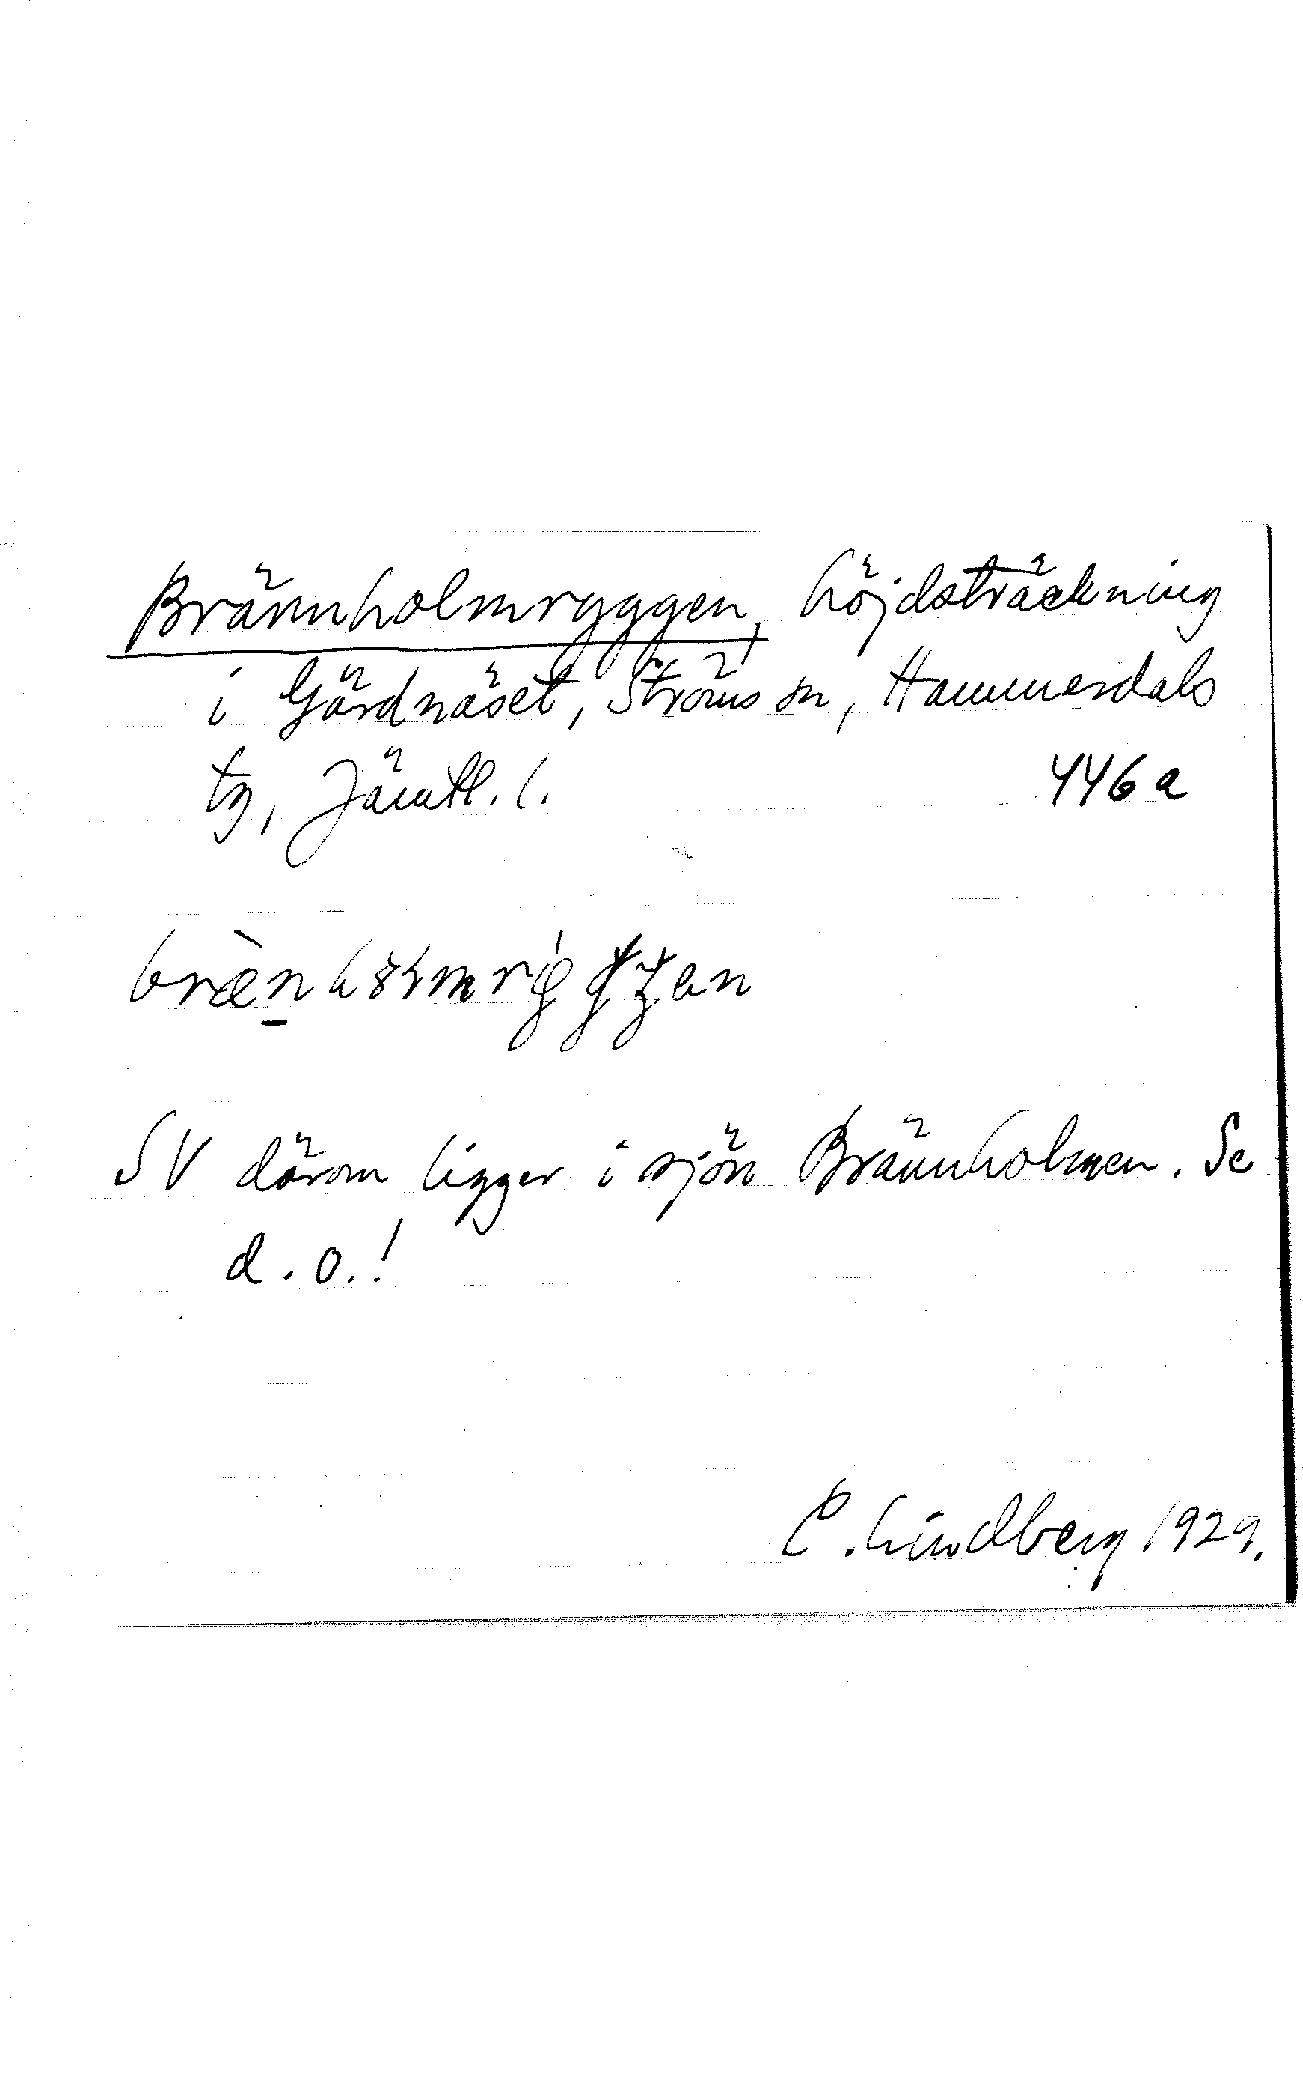 Brännholmryggen, höjdsträckning
i Gärdnäset, Ströms sn, Hammerdals
tg, Jämtl. l. 446 a
SV därom ligger i sjön Brännholmen. Se
d. o.!
C. Lindberg 1929.